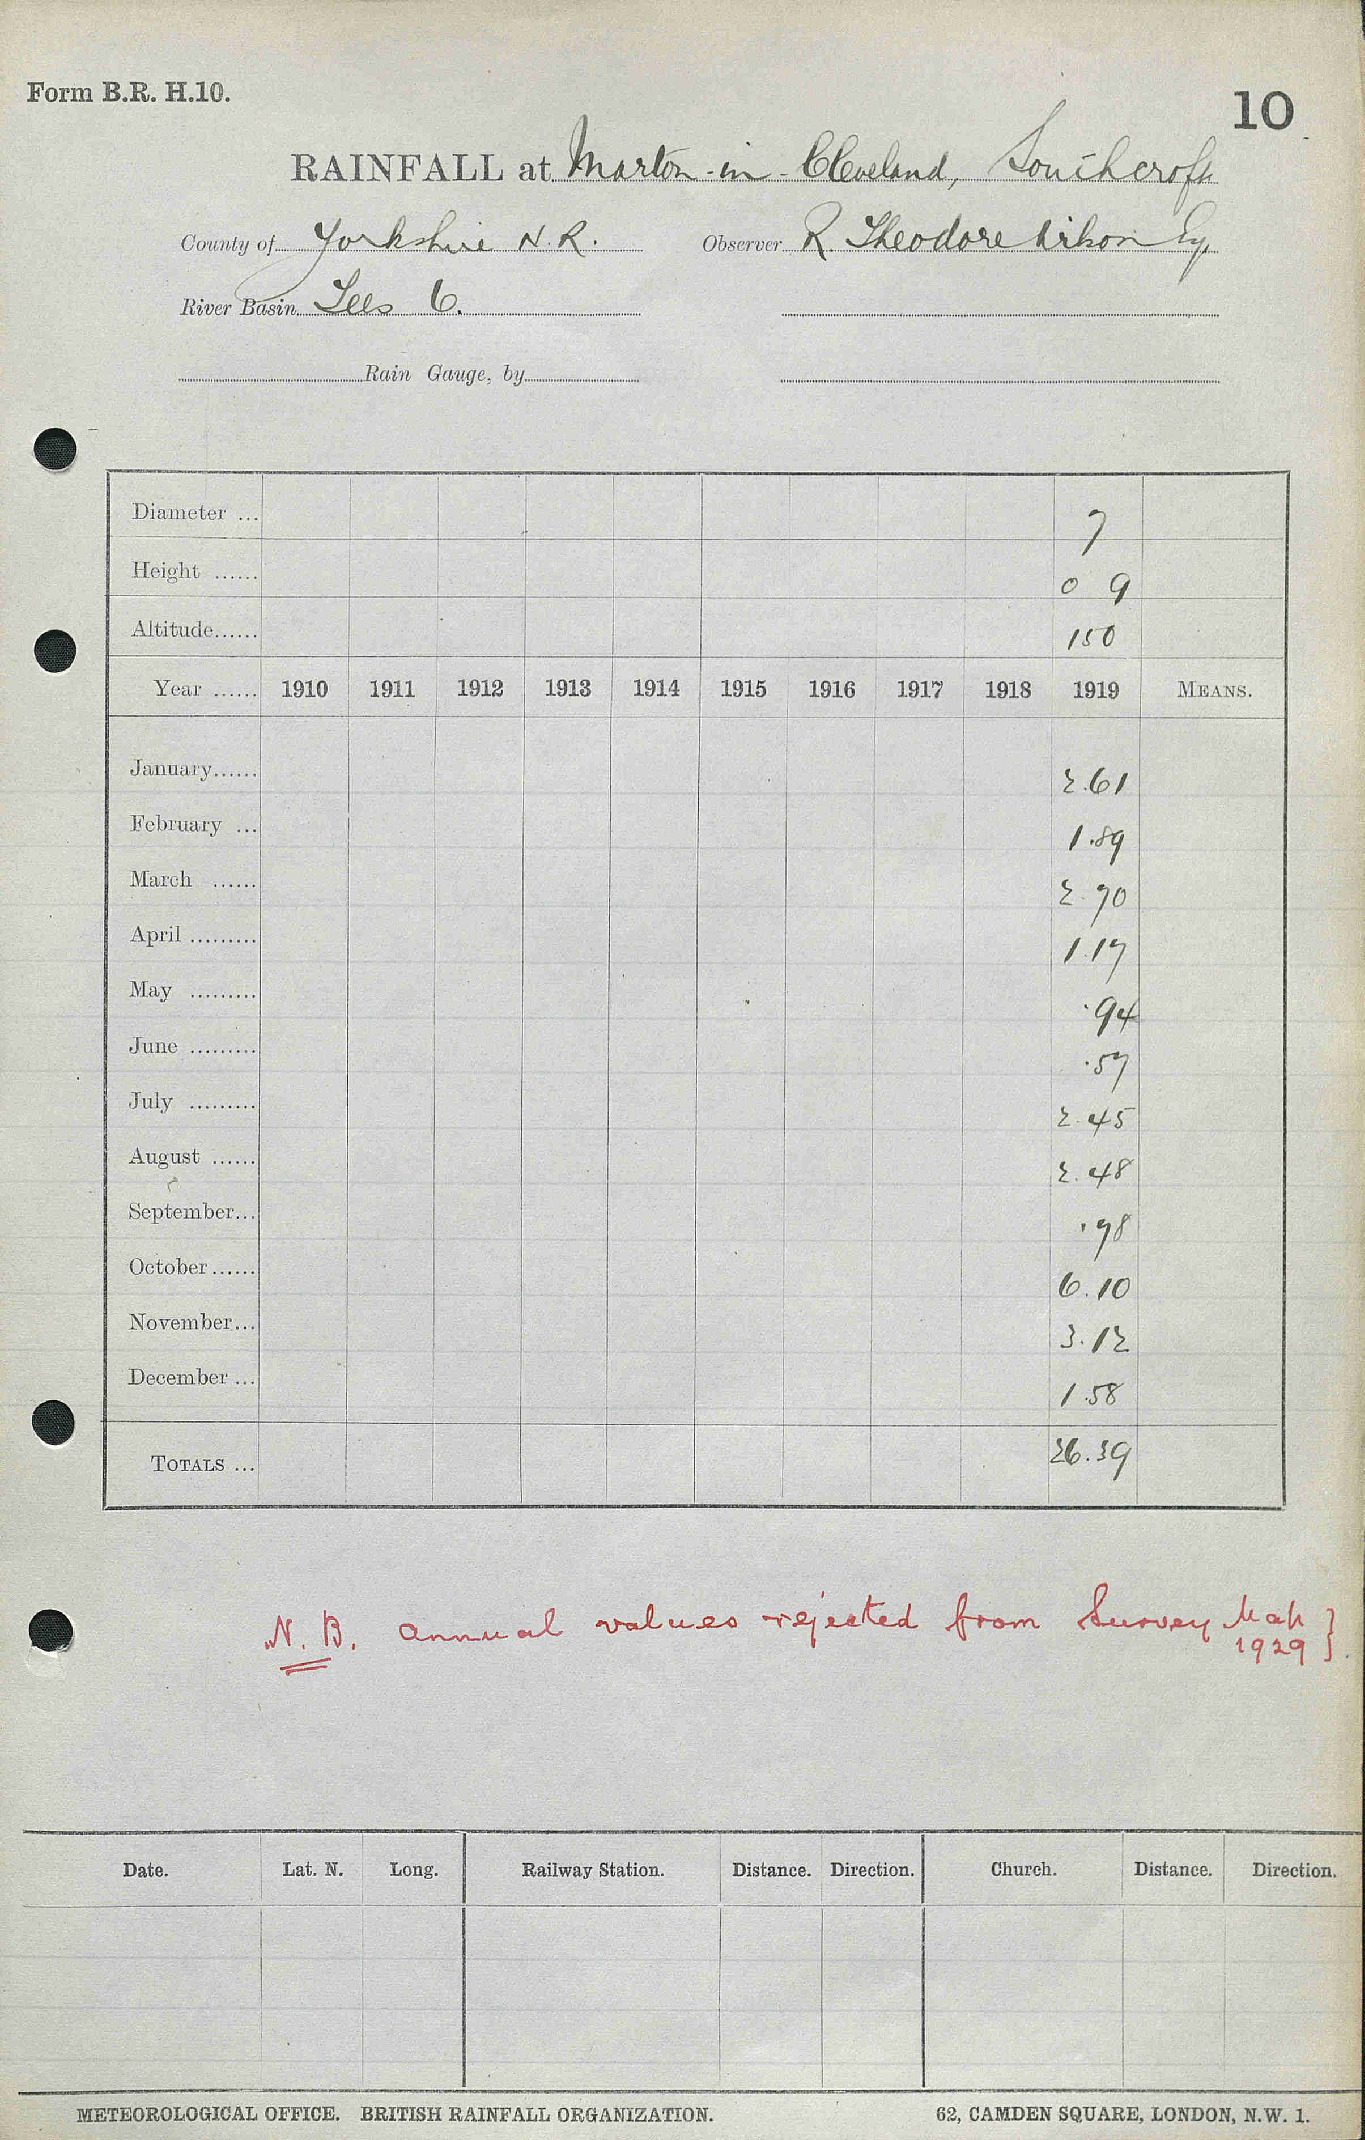 Form B.R. H.10.
10
RAINFALL at Marton-in-Cleveland, Southcroft
County of Yorkshire N.R. Observer R. Theodore Esq.
River Basin Tees 6.
Rain Gauge, by
Diameter ... 7
Height ...... 0 9
Altitude...... 150
Year ...... 1910 1911 1912 1913 1914 1915 1916 1917 1918 1919 MEANS.
January...... 2.61
February ... 1.89
March ...... 2.70
April ......... 1.17
May ......... .94
June ......... .57
July ......... 2.45
August ...... 2.48
September... .78
October...... 6.10
November... 3.12
December ... 1.58
TOTALS ... 26.39
N.B. annual values rejected from Survey Map }
1929
Date. Lat. N. Long. Railway Station. Distance. Direction. Church. Distance. Direction.
METEOROLOGICAL OFFICE. BRITISH RAINFALL ORGANIZATION. 62, CAMDEN SQUARE, LONDON, N.W. 1.